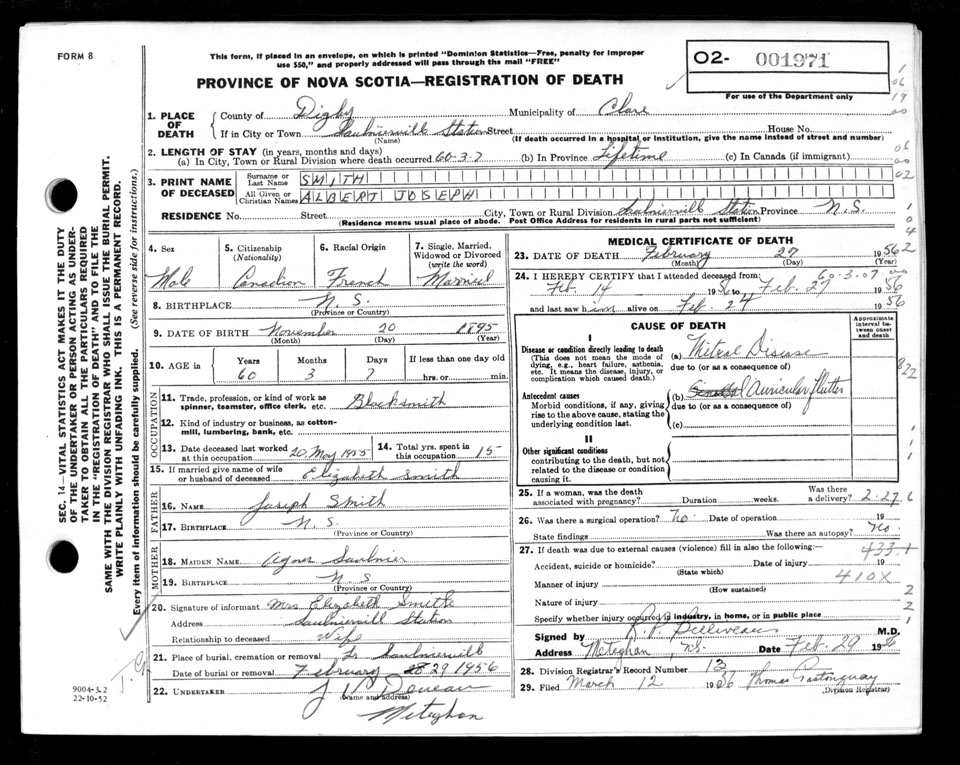 FORM 8
This form, if placed in an envelope, on which is printed "Dominion Statistics—Free, penalty for improper
use $50," and properly addressed will pass through the mail "FREE"
PROVINCE OF NOVA SCOTIA—REGISTRATION OF DEATH
O2- 001971
For use of the Department only
1. PLACE OF DEATH
County of Digby Municipality of Clare
If in City or Town Saulnierville Station Street House No.
(Name) (If death occurred in a hospital or institution, give the name instead of street and number)
2. LENGTH OF STAY (in years, months and days)
(a) In City, Town or Rural Division where death occurred 60-3-7 (b) In Province Lifetime (c) In Canada (if immigrant)
3. PRINT NAME OF DECEASED
Surname or Last Name SMITH
All Given or Christian Names ALBERT JOSEPH
RESIDENCE No. Street City, Town or Rural Division Saulnierville Station Province N.S.
(Residence means usual place of abode. Post Office Address for residents in rural parts not sufficient)
4. Sex Male
5. Citizenship (Nationality) Canadian
6. Racial Origin French
7. Single, Married, Widowed or Divorced (write the word) Married
8. BIRTHPLACE N.S.
(Province or Country)
9. DATE OF BIRTH November 20 1895
(Month) (Day) (Year)
10. AGE Years 60 Months 3 Days 7 If less than one day old hrs. or min.
OCCUPATION
11. Trade, profession, or kind of work as spinner, teamster, office clerk, etc. Blacksmith
12. Kind of industry or business, as cotton-mill, lumbering, bank, etc.
13. Date deceased last worked at this occupation 20 May 1955
14. Total yrs. spent in this occupation 15
15. If married give name of wife or husband of deceased Elizabeth Smith
FATHER
16. NAME Joseph Smith
17. BIRTHPLACE N.S.
(Province or Country)
MOTHER
18. MAIDEN NAME Agnes Saulnier
19. BIRTHPLACE N.S
(Province or Country)
20. Signature of informant Mrs Elizabeth Smith
Address Saulnierville Station
Relationship to deceased Wife
21. Place of burial, cremation or removal Saulnierville
Date of burial or removal February 29 1956
22. UNDERTAKER
(Name and address)
Meteghan
MEDICAL CERTIFICATE OF DEATH
23. DATE OF DEATH February 27 1956
(Month) (Day) (Year)
60.3.07
24. I HEREBY CERTIFY that I attended deceased from:
Feb. 14 1956 to Feb. 27 1956
and last saw him alive on Feb. 24 1956
CAUSE OF DEATH
Approximate interval between onset and death
I
Disease or condition directly leading to death
(This does not mean the mode of dying, e.g., heart failure, asthenia, etc. It means the disease, injury, or complication which caused death.)
(a) Mitral Disease
due to (or as a consequence of)
Antecedent causes
Morbid conditions, if any, giving rise to the above cause, stating the underlying condition last.
(b) Auricular flutter
due to (or as a consequence of)
(c)
II
Other significant conditions
contributing to the death, but not related to the disease or condition causing it.
25. If a woman, was the death associated with pregnancy? Duration weeks. Was there a delivery? 2-27
26. Was there a surgical operation? No Date of operation 19
State findings Was there an autopsy? No.
27. If death was due to external causes (violence) fill in also the following:— 433.1
Accident, suicide or homicide? Date of injury 19
(State which) 410X
Manner of injury
(How sustained)
Nature of injury
Specify whether injury occurred in industry, in home, or in public place
Signed by M.D.
Address Meteghan, N.S. Date Feb. 29 1956
28. Division Registrar's Record Number 13
29. Filed March 12 1956 Thomas Castonguay
(Division Registrar)
SEC. 14—VITAL STATISTICS ACT MAKES IT THE DUTY
OF THE UNDERTAKER OR PERSON ACTING AS UNDER-
TAKER TO OBTAIN ALL THE PARTICULARS REQUIRED
IN THE "REGISTRATION OF DEATH" AND TO FILE THE
SAME WITH THE DIVISION REGISTRAR WHO SHALL ISSUE THE BURIAL PERMIT.
WRITE PLAINLY WITH UNFADING INK. THIS IS A PERMANENT RECORD.
Every item of information should be carefully supplied. (See reverse side for instructions.)
9004-3.2
22-10-52